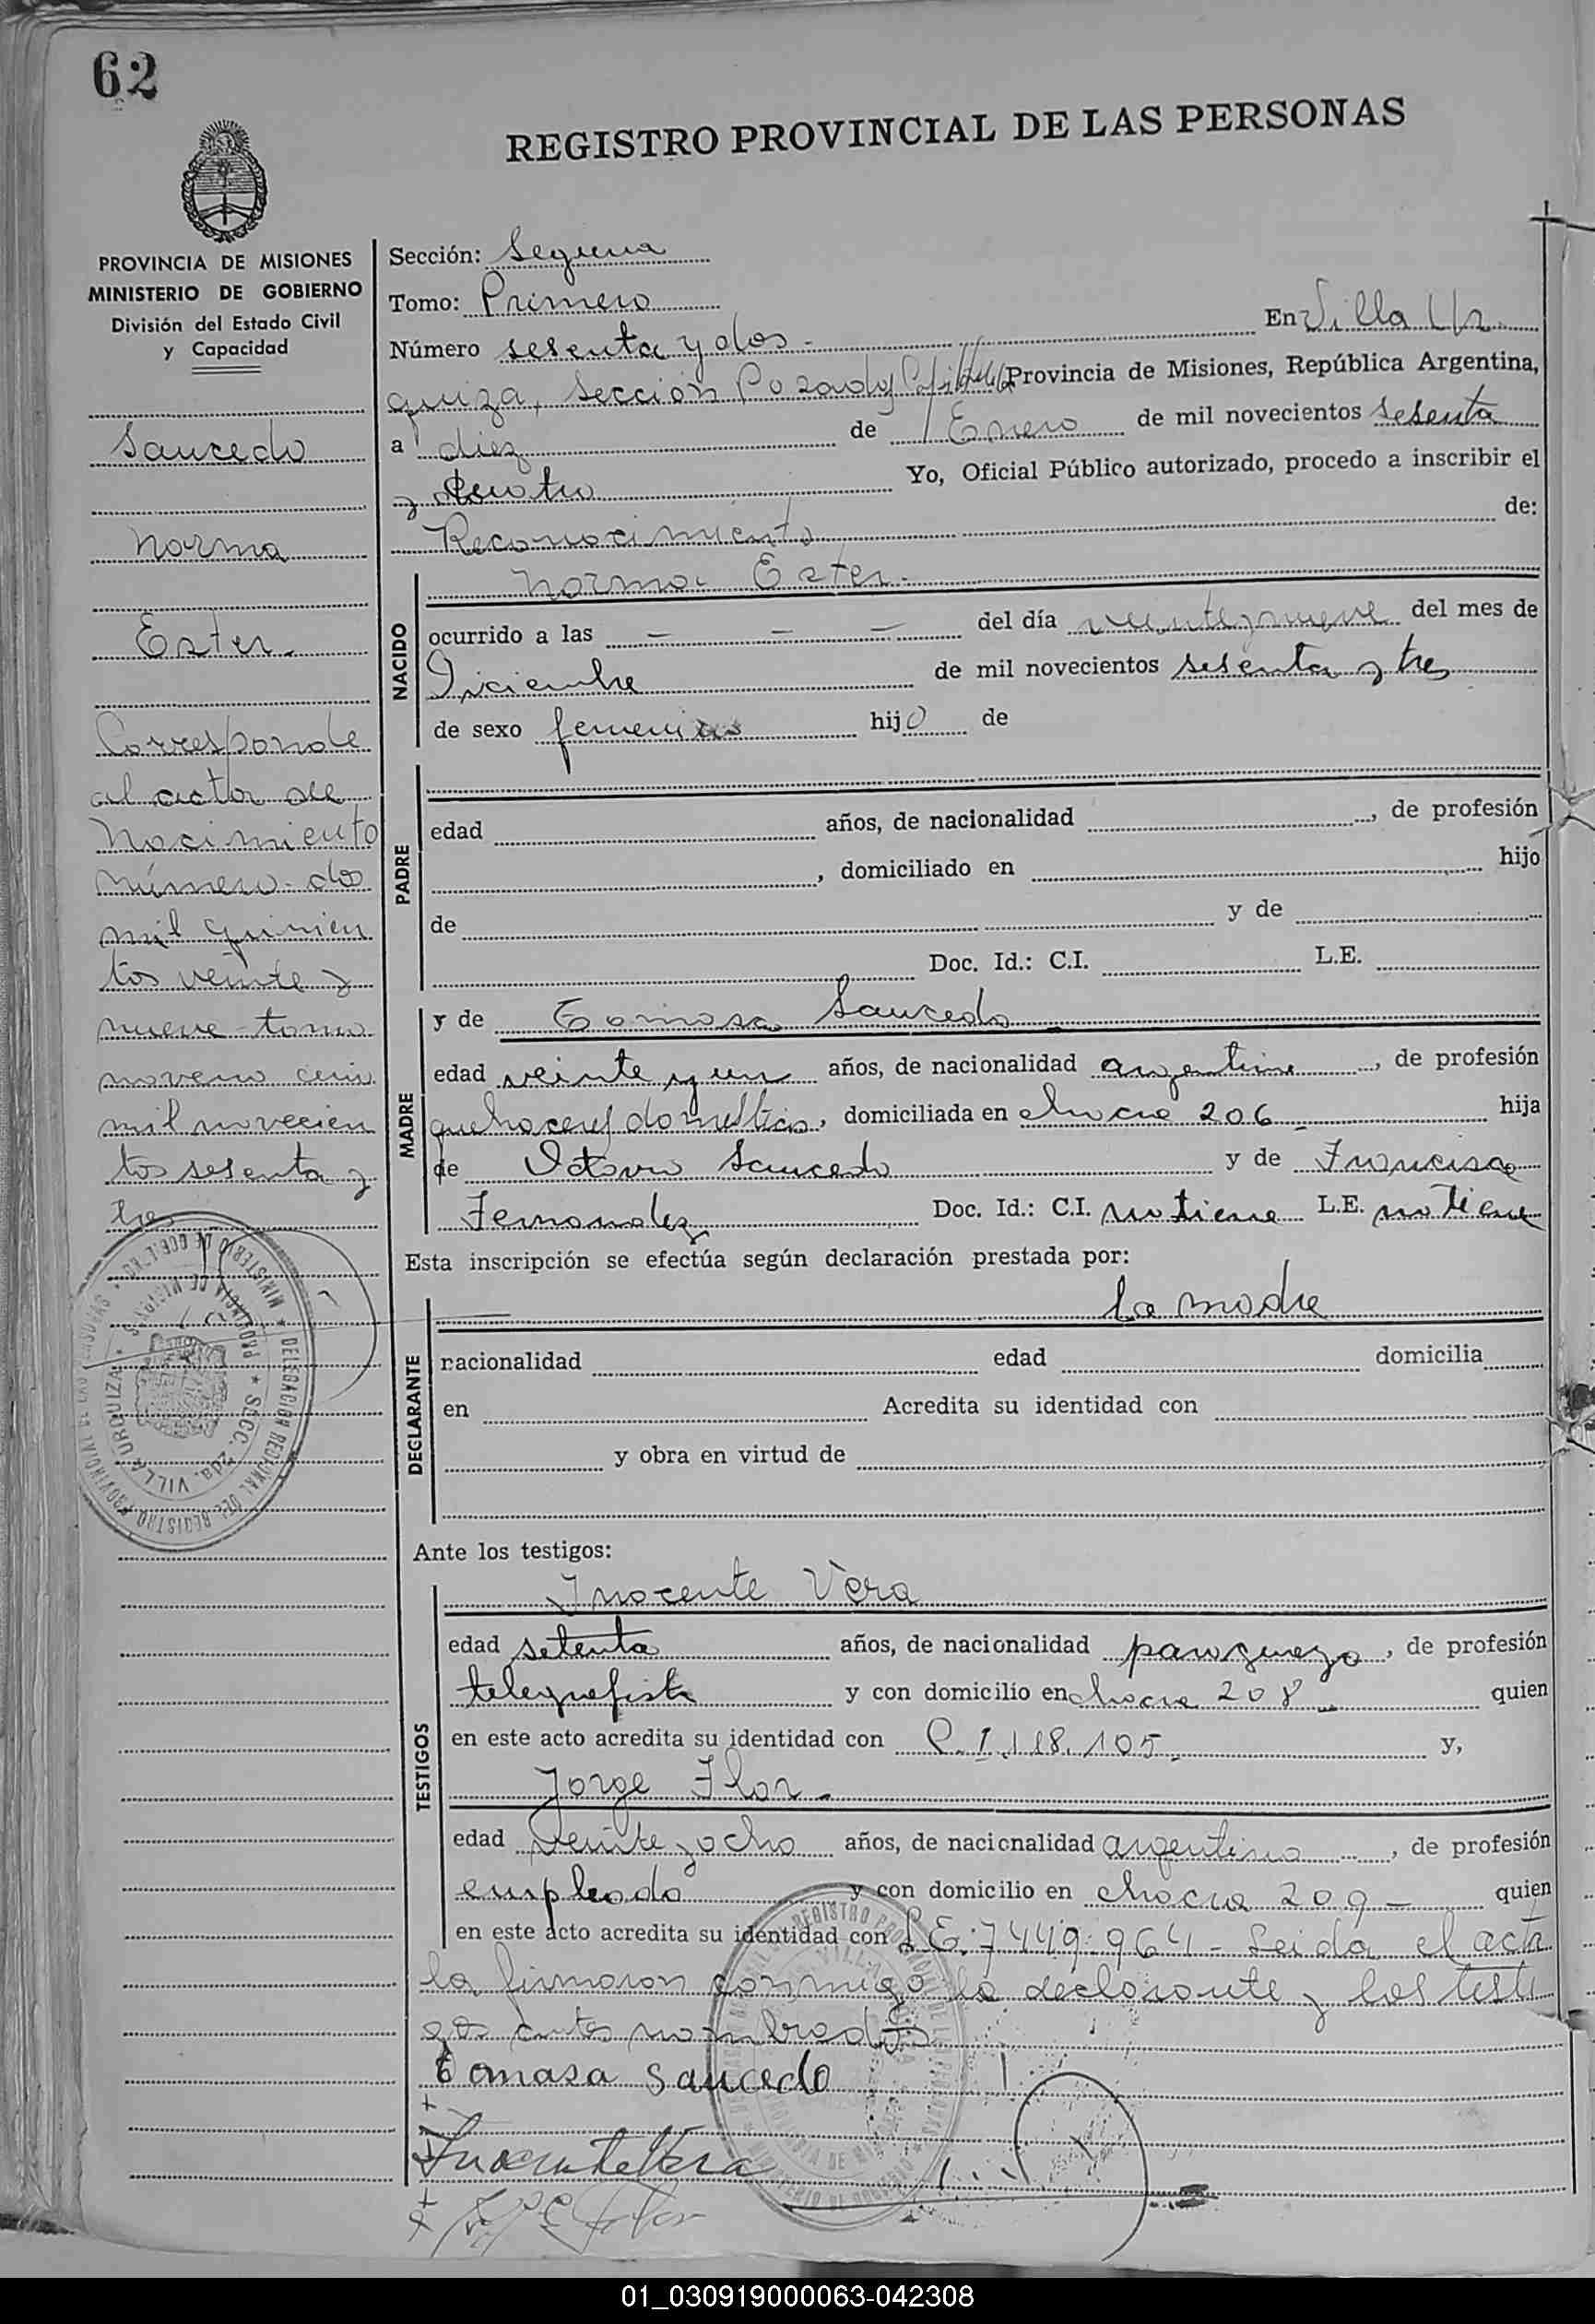 62
REGISTRO PROVINCIAL DE LAS PERSONAS
PROVINCIA DE MISIONES
MINISTERIO DE GOBIERNO
División del Estado Civil
y Capacidad
Saucedo
Norma
Ester.
Corresponde
al acta de
Nacimiento
número dos
mil quinien
tos veinte y
nueve tomo
noveno
mil novecien
tos sesenta y
tres
Sección: Segunda
Tomo: Primero
Número sesenta y dos - En Villa Ur
quiza, Sección Posadas Capital Provincia de Misiones, República Argentina,
a diez de Enero de mil novecientos sesenta
y cuatro Yo, Oficial Público autorizado, procedo a inscribir el
Reconocimiento de:
NACIDO
Norma Ester.
ocurrido a las — — — del día veinte y nueve del mes de
Diciembre de mil novecientos sesenta y tres
de sexo femenino hijo de
PADRE
edad años, de nacionalidad , de profesión
, domiciliado en hijo
de y de
Doc. Id.: C.I. L.E.
MADRE
y de Tomasa Saucedo
edad veinte y un años, de nacionalidad argentina , de profesión
quehaceres domesticos, domiciliada en chacra 206 - hija
de Octavio Saucedo y de Francisca
Fernandez Doc. Id.: C.I. no tiene L.E. no tiene
Esta inscripción se efectúa según declaración prestada por:
DECLARANTE
La madre
nacionalidad edad domicilia
en Acredita su identidad con
y obra en virtud de
Ante los testigos:
TESTIGOS
Inocente Vera
edad setenta años, de nacionalidad paraguayo, de profesión
telegrafista y con domicilio en chacra 208 - quien
en este acto acredita su identidad con C.I. 118.105 - y,
Jorge Flor -
edad veinte y ocho años, de nacionalidad argentino , de profesión
empleado y con domicilio en chacra 209 - quien
en este acto acredita su identidad con L.E. 7.449.964 - Leida el acta
la firmaron conmigo la declarante y los testi
gos antes nombrados
tomasa saucedo
Inocente Vera
DELEGACION REGIONAL DEL REGISTRO PROVINCIAL DE LAS PERSONAS
MINISTERIO DE GOBIERNO
PROVINCIA DE MISIONES
SECC. 2da. VILLA URQUIZA
01_030919000063-042308